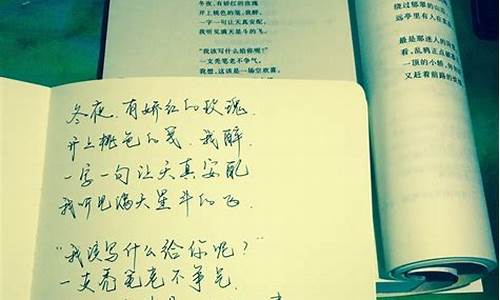 冬夜,有娇红的玫瑰
开上桃色的笺,我醉,
一字一句让天真安配,
我听见满天星斗的飞。
“我该写什么给你呢?”
一支秃笔老不争气。
我想,这该是一场空欢喜。
绕过郁翠的山
远亭里有人在
最是那迷人的
看,乱鸦正点
一顶的小轿,
又赶着前路的
冬夜.有娇红的玫瑰.
开上桃色的笺.我醉.
一字一句让天真安配
我听见满天星斗的飞.
“我该写什么给你呢?”
一支秃笔老不争气.